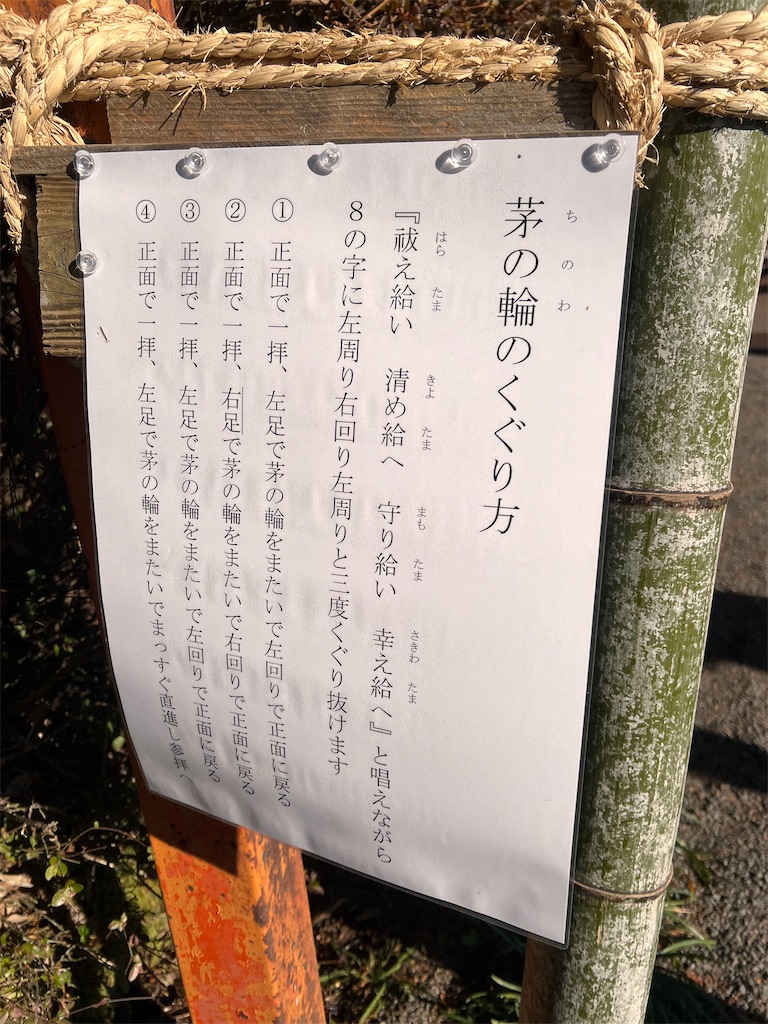 茅の輪のくぐり方
ちのわ
『祓え給い　清め給へ　守り給い　幸え給へ』と唱えながら
はら　たま　きよ　たま　まも　たま　さきわ　たま
8の字に左周り右回り左周りと三度くぐり抜けます
① 正面で一拝、左足で茅の輪をまたいで左回りで正面に戻る
② 正面で一拝、右足で茅の輪をまたいで右回りで正面に戻る
③ 正面で一拝、左足で茅の輪をまたいで左回りで正面に戻る
④ 正面で一拝、左足で茅の輪をまたいでまっすぐ直進し参拝へ